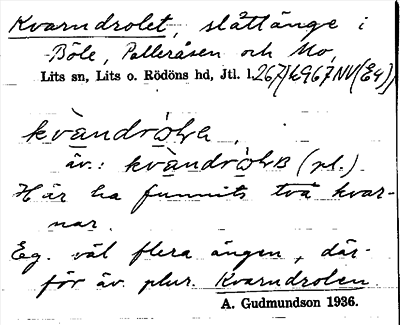 Kvarndrolet, slåttänge i
Böle, Palleråsen och Mo,
Lits sn, Lits o. Rödöns hd, Jtl. l.
kvàndrol
äv.: kvàndrolB (pl.)
Här ha funnits två kvar-
nar.
Eg. väl flera ängen, där-
för äv. plur. Kvarndrolen.
A. Gudmundson 1936.